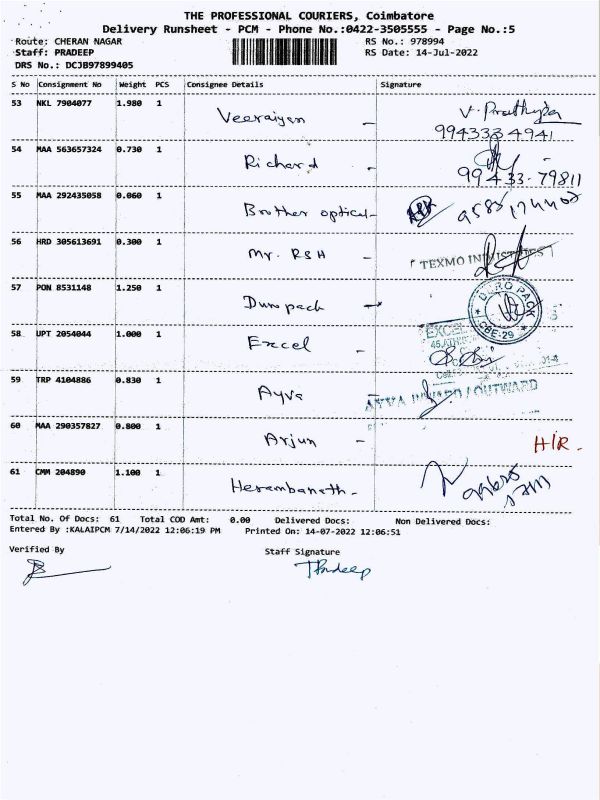 THE PROFESSIONAL COURIERS, Coimbatore
Delivery Runsheet - PCM - Phone No.:0422-3505555 - Page No.:5
Route: CHERAN NAGAR RS No.: 978994
Staff: PRADEEP RS Date: 14-Jul-2022
DRS No.: DCJB97899405
S No Consignment No Weight PCS Consignee Details Signature
53 NKL 7904077 1.980 1 Veeraiyan - V. Prathyba
9943334941
54 MAA 563657324 0.730 1 Richard -
99433-79811
55 MAA 292435058 0.060 1 Brother optical-
56 HRD 305613691 0.300 1 Mr. RSH - TEXMO INDUSTRIES
57 PON 8531148 1.250 1 Duropack - DURO PACK
CBE-29
58 UPT 2054044 1.000 1 Excel - EXCEL
59 TRP 4104886 0.830 1 Ayva AYVA INWARD / OUTWARD
60 MAA 290357827 0.800 1 Arjun - H/R.
61 CMM 204890 1.100 1 Herambanath-
Total No. Of Docs: 61 Total COD Amt: 0.00 Delivered Docs: Non Delivered Docs:
Entered By :KALAIPCM 7/14/2022 12:06:19 PM Printed On: 14-07-2022 12:06:51
Verified By Staff Signature
TPradeep